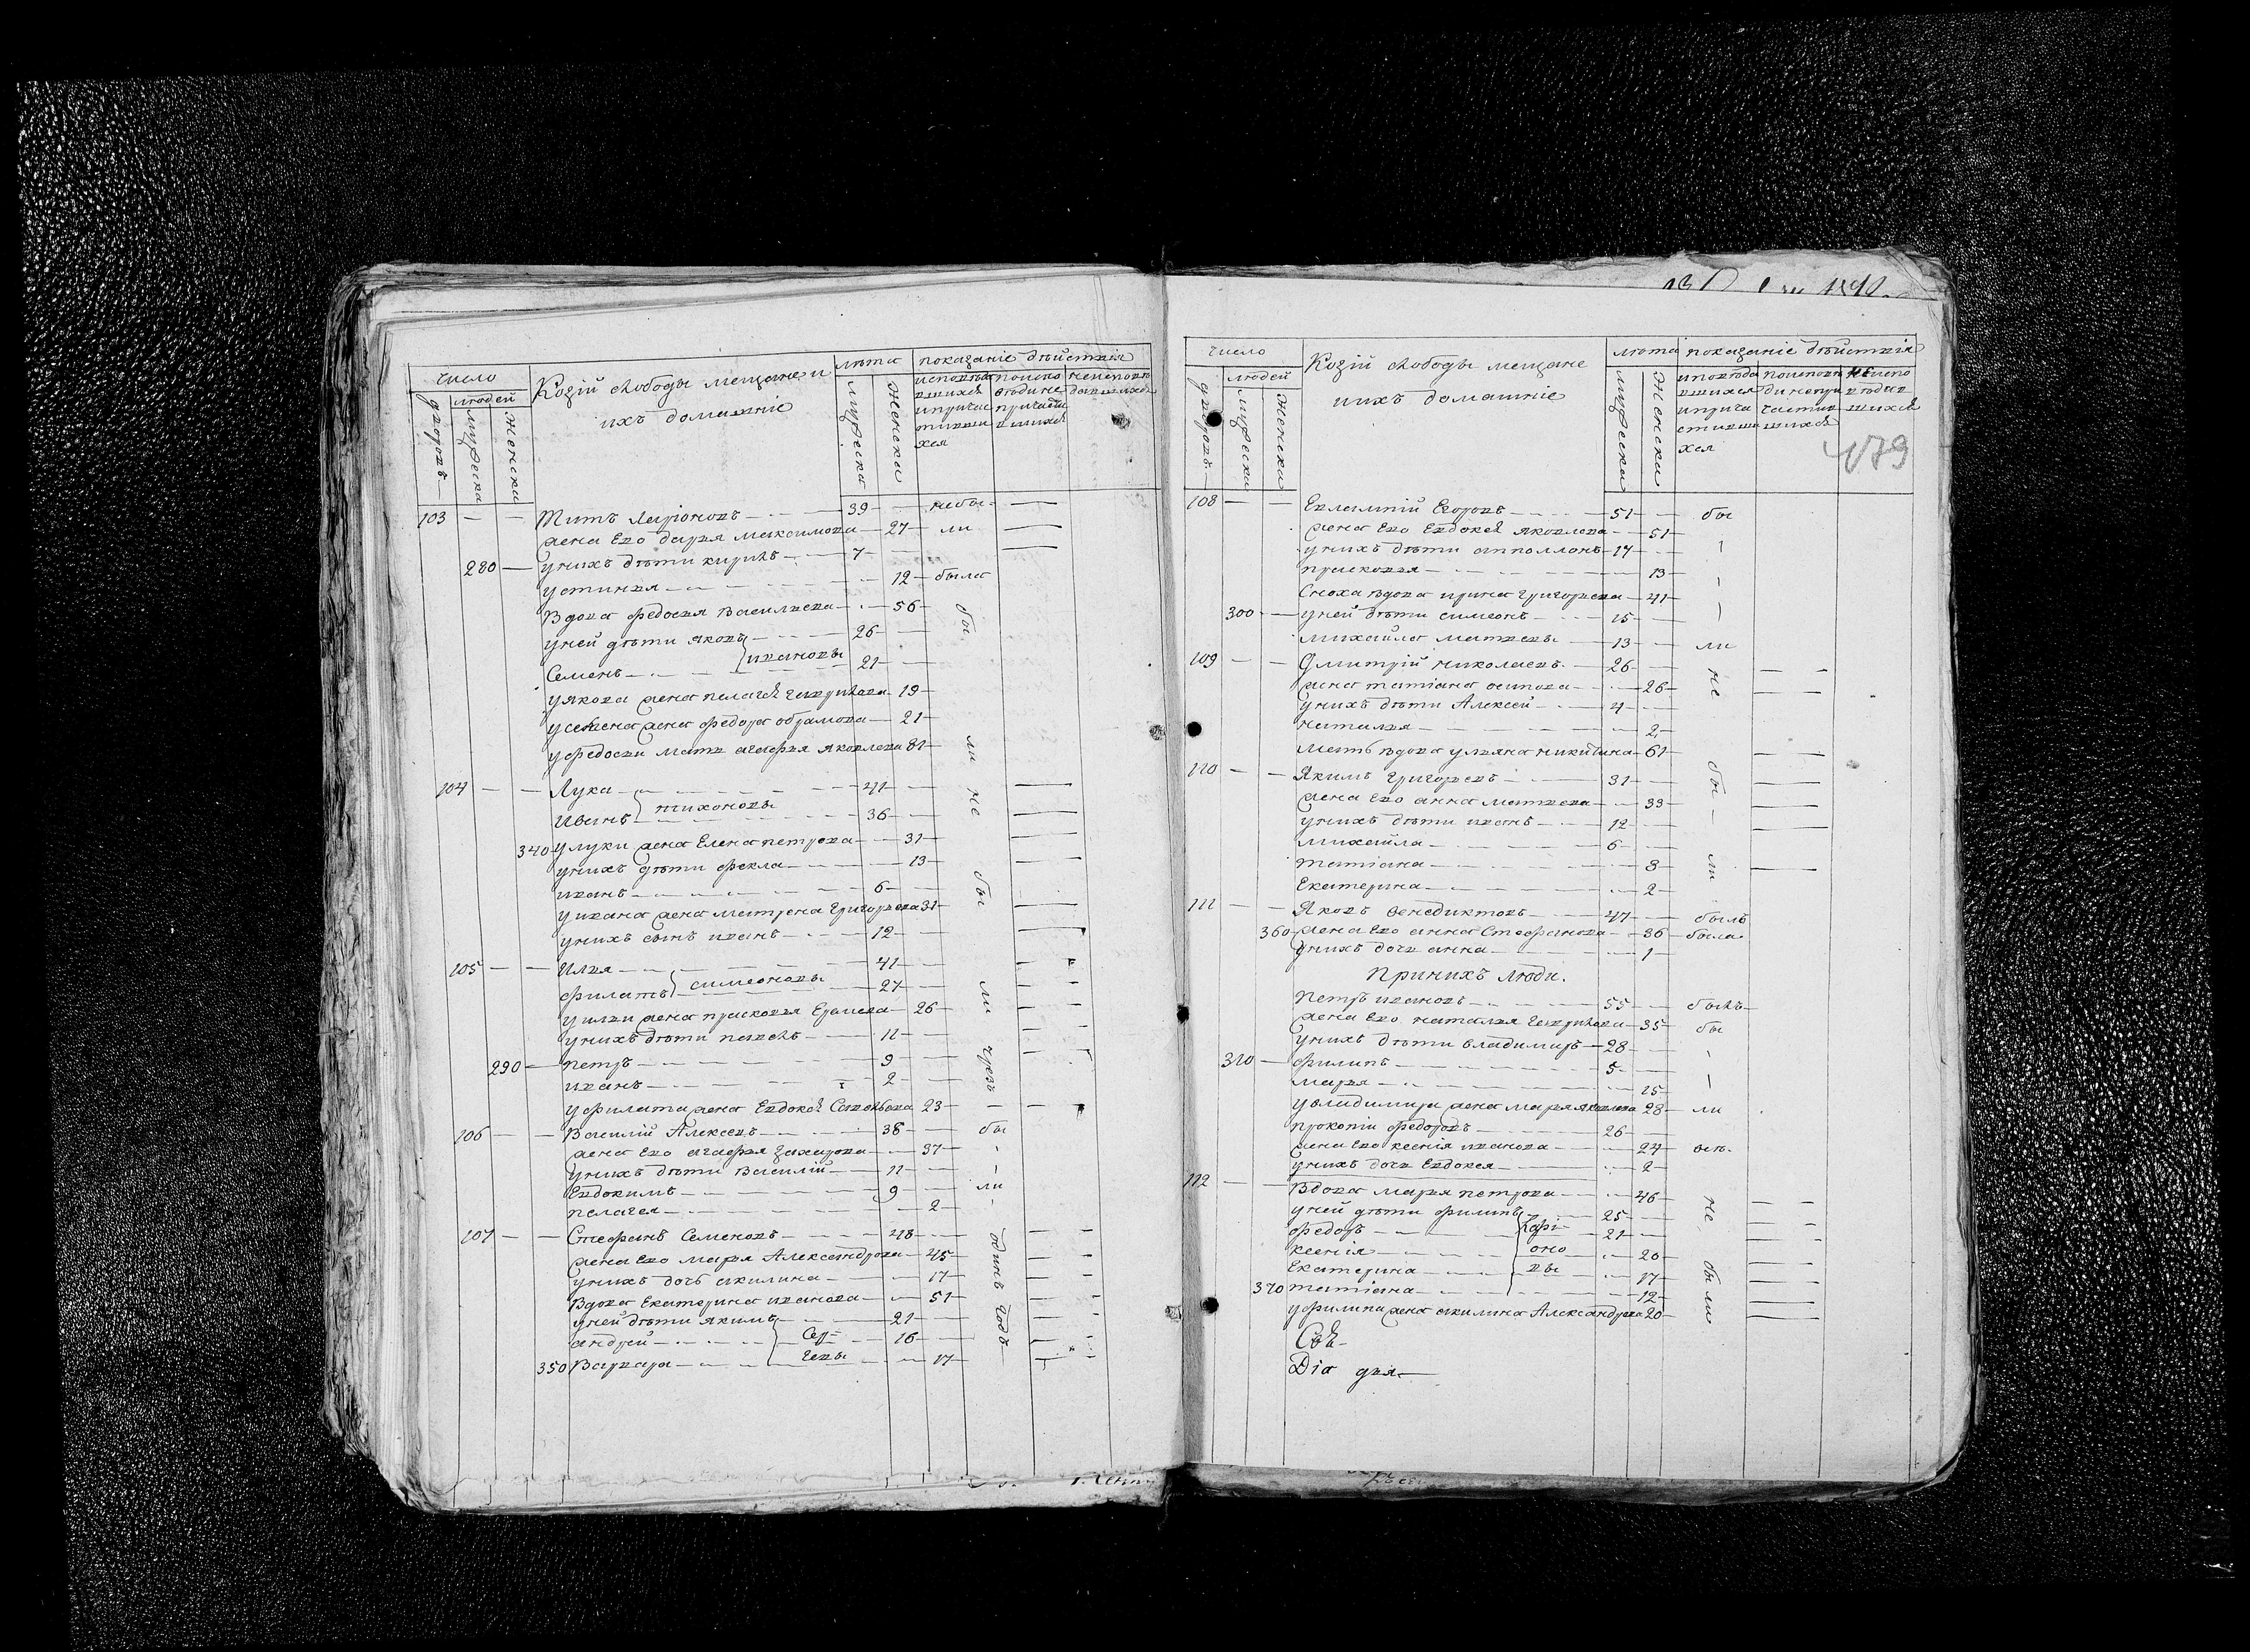 число
людей
дворовъ
мужеска
женска
Козій слободы мещане и
ихъ домашніе
лѣта
мужеска
женска
показаніе дѣйствія
исповѣдавшихся и причастившихся
по исповѣди не причастившихся
не исповѣдавшихся
103 — — Титъ Ларіоновъ — 39 — небы-
жена Ево дарья максимова — 27 — ли
280 — у нихъ дѣти кирилъ — 7 —
устинья — 12 — была
Вдова федосья Васильева — 56 — бы
у ней дѣти яковъ — 26 —
ивановы
Семенъ — 21 —
у якова жена пелагея гаврилова — 19 —
у семена жена федора обрамова — 21 —
у федосьи мать агафья яковлева 81 — ли
104 — — Лука — 41 — не
тихоновы
Иванъ — 36 —
340 у луки жена Елена петрова — 31 —
у нихъ дѣти фекла — 13 —
иванъ — 6 — бы
у ивана жена матрена григорьева 31 —
у нихъ сынъ иванъ — 12 —
105 — — Илья — 41 —
симеоновы
филатъ — 27 — ли
у ильи жена прасковья — 26 —
у нихъ дѣти павелъ — 11 —
290 — петръ — 9 — чрезъ
иванъ — 2 —
у филата жена Евдокея 23 —
106 — — Василій Алексеевъ — 38 — бы
жена Ево агафья захарова — 37 —
у нихъ дѣти Василій — 11 —
Евдокимъ — 9 — ли
пелагея — 2 —
107 — — Стефанъ Семеновъ — 48 — одинъ
жена Ево марья Александрова — 45 —
у нихъ дочь акилина — 17 —
Вдова Екатерина иванова — 51 — годъ
у ней дѣти якимъ — 21 —
андрей — Сер- 16 —
геевы
350 Варвара — 17 —
1840
число
людей
дворовъ
мужеска
женска
Козій слободы мещане
и ихъ домашніе
лѣта
мужеска
женска
показаніе дѣйствія
исповѣдавшихся и причастившихся
по исповѣди не причастившихся
не исповѣдавшихся
179
108 — — Евлампій Егоровъ — 51 — бы
жена Ево Евдокея яковлева — 51 —
у нихъ дѣти апполлонъ — 17 —
прасковья — 13 —
Сноха вдова ирина григорьева — 41 —
300 — у ней дѣти симеонъ — 15 —
михайла матвеевы — 13 — ли
109 — — Дмитрій николаевъ — 26 — не
жена татіана осипова — 26 —
у нихъ дѣти Алексей — 4 —
наталья — 2
мать вдова ульяна никитина — 61 —
110 — — Якимъ григорьевъ — 31 — бы
жена Ево анна матвеева — 33 —
у нихъ дѣти иванъ — 12 —
михайла — 6 —
татіана — 8 — ли
Екатерина — 2 —
111 — — Яковъ венедиктовъ — 47 — былъ
360 — жена Ево анна Стефанова — 36 — была
у нихъ дочь анна — 1 —
При нихъ люди.
Петръ ивановъ — 55 — былъ
жена Ево наталья гаврилова — 35 — бы
у нихъ дѣти владимиръ — 28 —
310 — филипъ — 5 —
марья — 15 —
у владимира жена марья яковлева 28 — ли
прокопій федоровъ — 26 —
жена Ево ксенія иванова — 24 —
у нихъ дочь Евдокея — 2 —
112 — — Вдова марья петрова — 46 — не
у ней дѣти филипъ — 25 —
федоръ — Ларі- 21 —
ксенія — оно 20 —
Екатерина — вы 17 — бы
370 татіана — 12 —
у филипа жена акилина Александрова 20 — ли
Діа